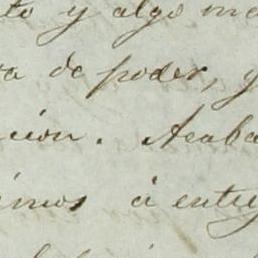 to y algo ma
ta de poder, y
cion. Acaba
imos á entre